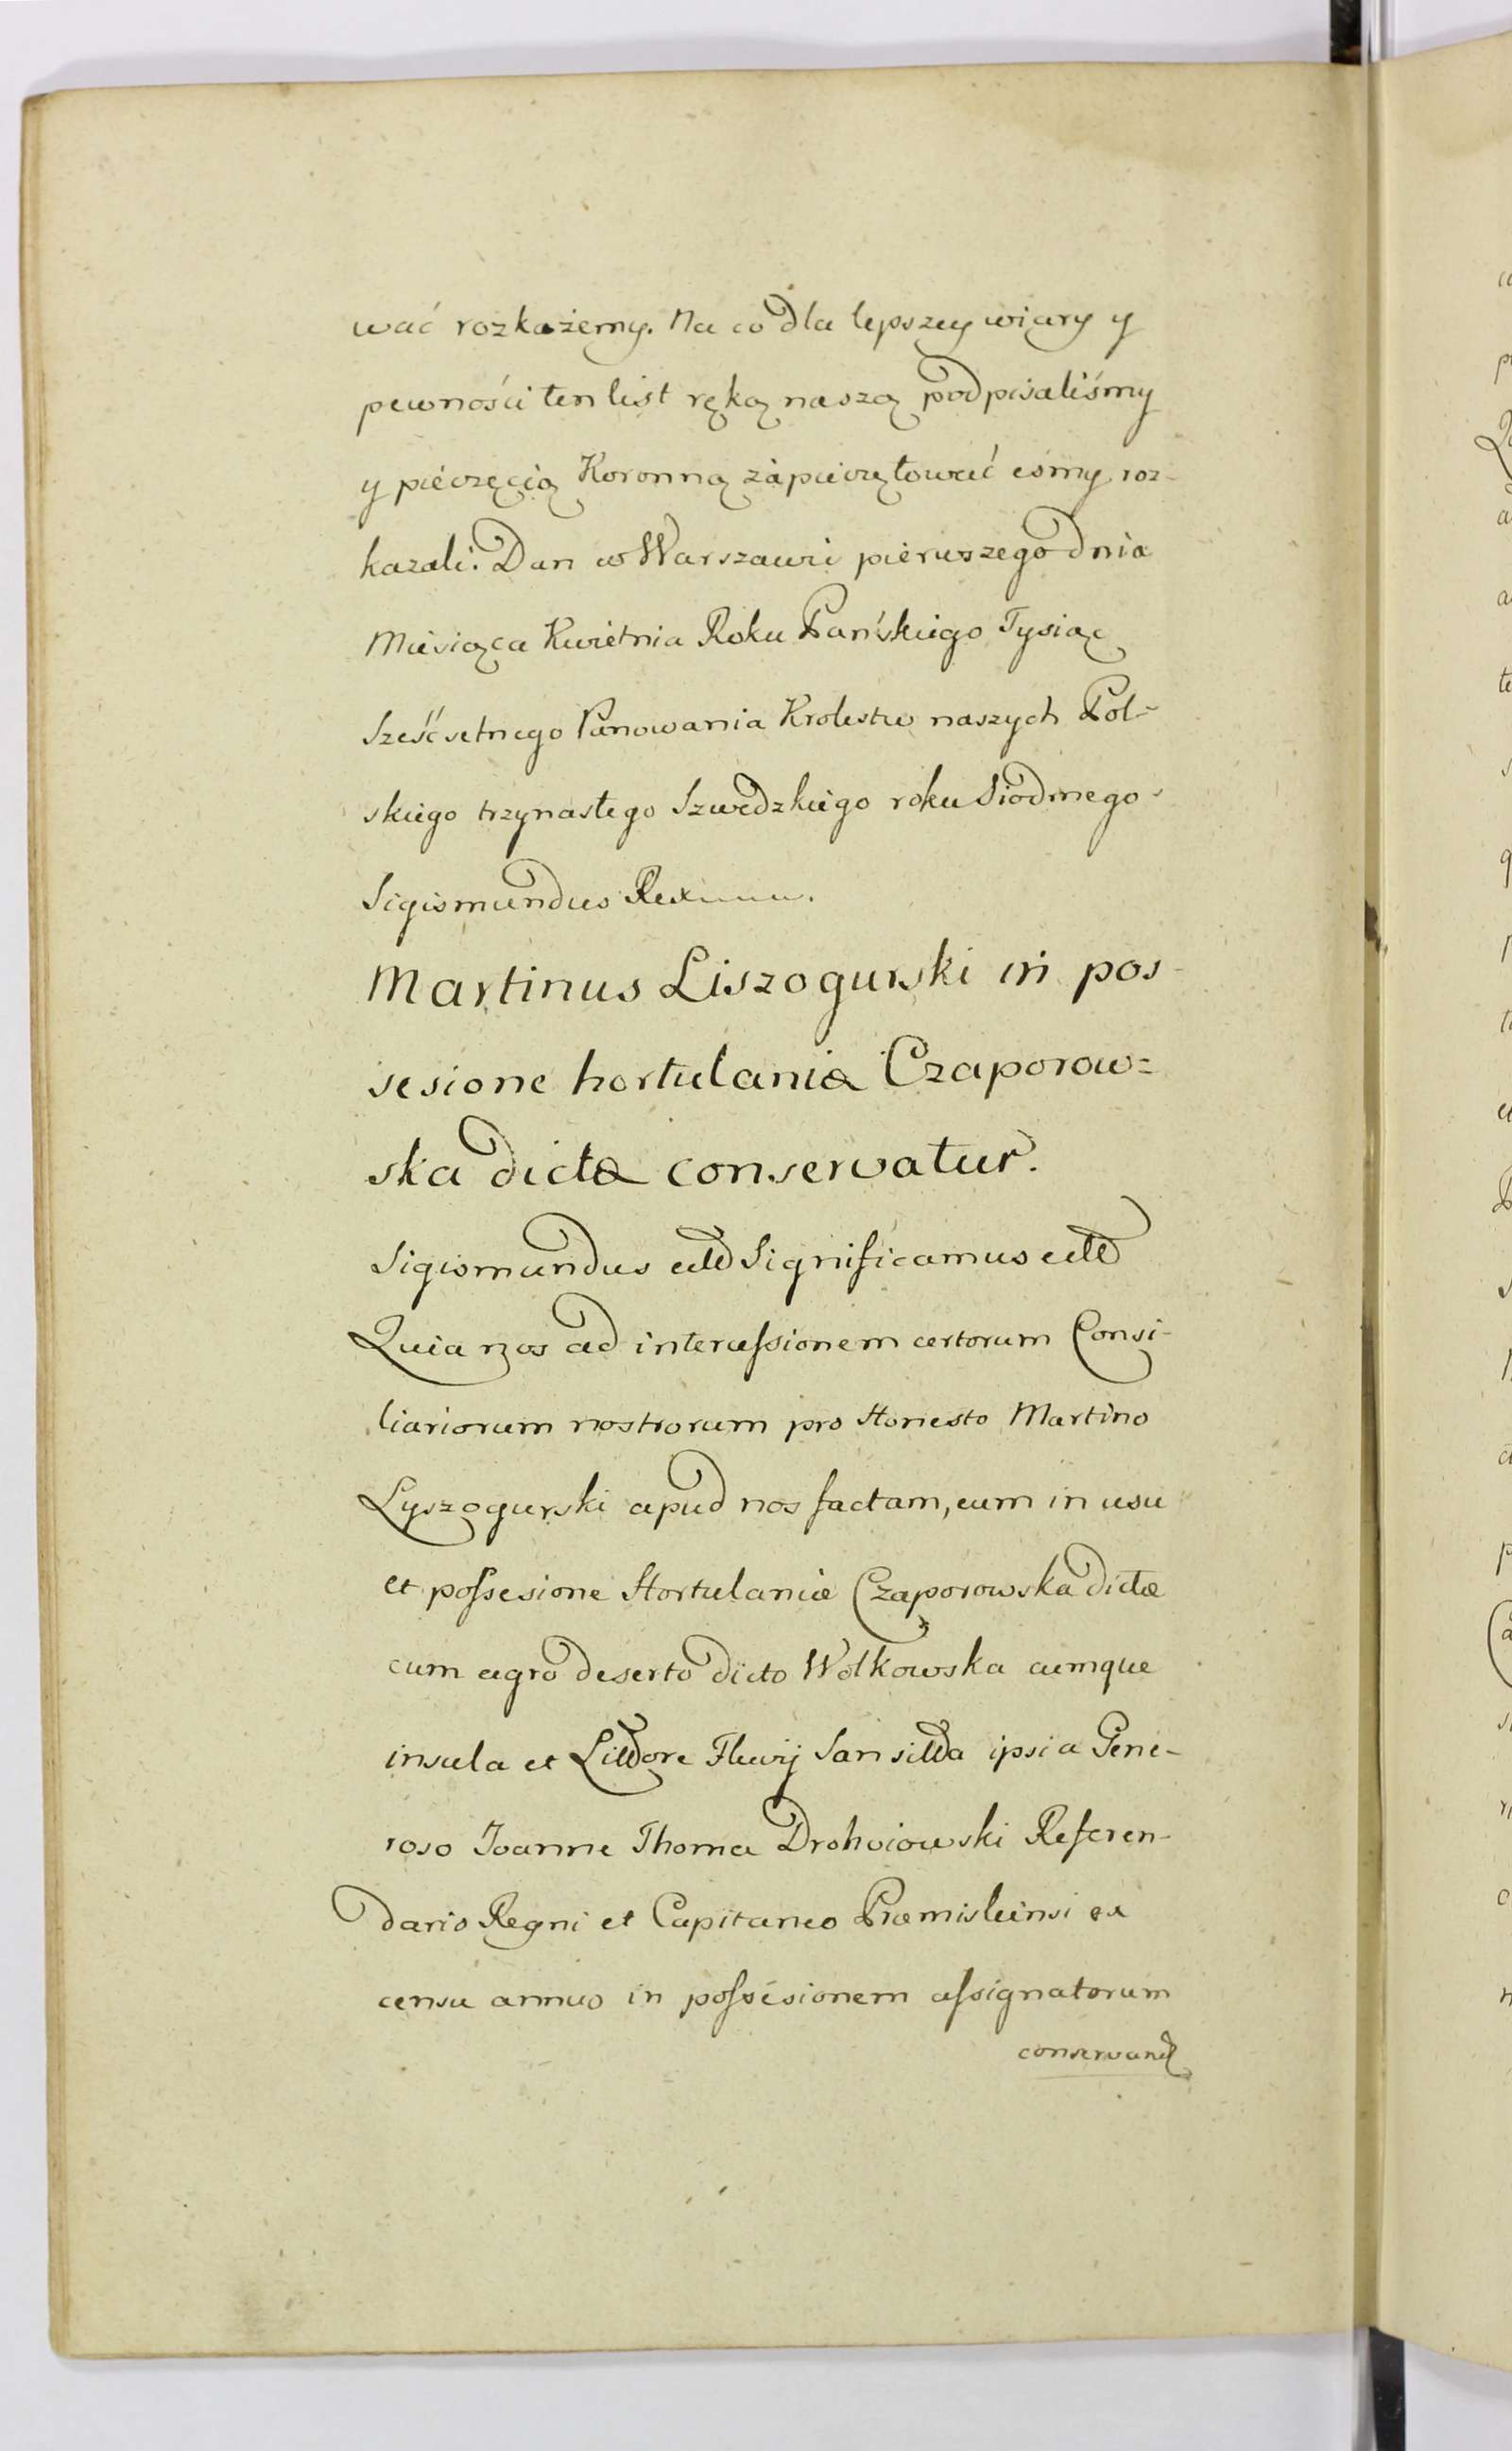 wać rozkażemy. Na co dla lepszey wiary y
pewności ten list ręką naszą podpisaliśmy
y pieczęcią Koronną zapieczętować eśmy roz-
kazali. Dan w Warszawie pierwszego dnia
Miesiąca Kwietnia Roku Pańskiego Tysiąc
Sześćsetnego Panowania Krolestw naszych Pol-
skiego trzynastego Szwedzkiego roku Siodmego
Sigismundus Rex
Martinus Liszogurski in pos-
sesione hortulaniæ Czaporow=
ska dictæ conservatur.
Sigismundus Significamus
Quia nos ad intercessionem certorum Consi-
liariorum nostrorum pro Honesto Martino
Lyszogurski apud nos factam, eum in usu
et possesione Hortulaniæ Czaporowska dictæ
cum agro deserto dicto Wolkowska cumque
insula et Fluvij San ipsi a Gene-
roso Joanne Thoma Drohoiowski Referen-
dario Regni et Capitaneo Præmisliensi ex
censu annuo in possesionem assignatorum